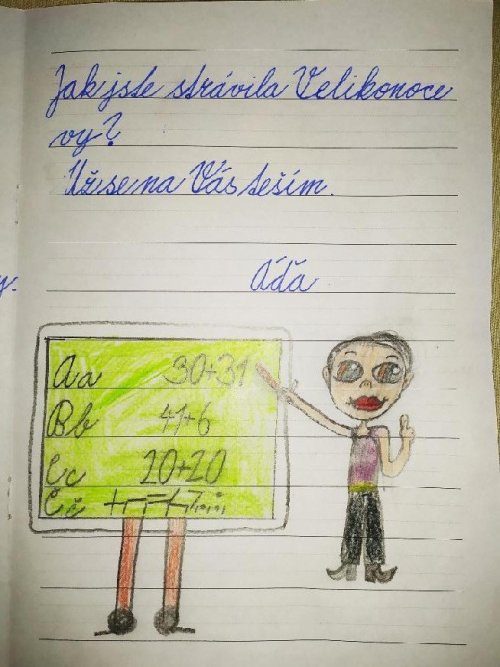 Jak jste strávila Velikonoce
vy?
Už se na Vás těším.
Áďa
y.
Aa 30+31
Bb 41+6
Cc 20+20
Čč